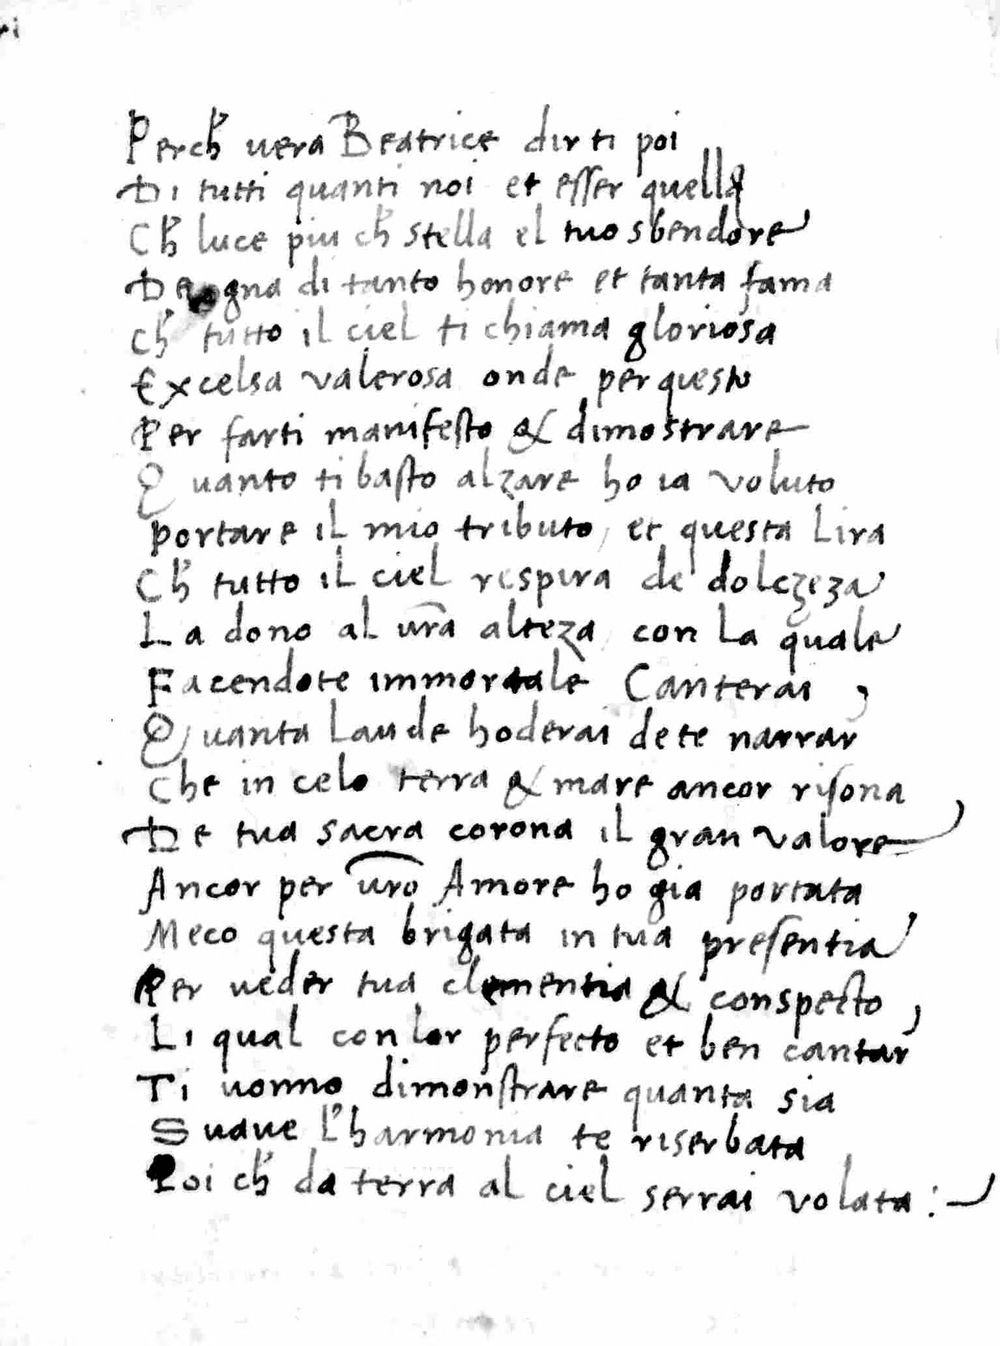 ri
Perch vera Beatrice dir ti poi
Di tutti quanti noi et esser quella
Ch luce piu ch stella el tuo sbendore
Degna di tanto honore et tanta fama
ch tutto il ciel ti chiama gloriosa
Excelsa valerosa onde per questo
Per farti manifesto & dimostrare
Quanto ti basto alzare ho ia voluto
portare il mio tributo, et questa Lira
Ch tutto il ciel respira de dolczeza
La dono al vra alteza, con La quale
Facendote immortale Canterai ,
Quanta Laude hoderai de te narrar
Che in celo terra & mare ancor risona
De tua sacra corona il gran valore
Ancor per vro Amore ho gia portata
Meco questa brigata in tua presentia
Per veder tua clementia & conspecto ,
Li qual con lor perfecto et ben cantar
Ti vonno dimonstrare quanta sia
Suave l'harmonia te riserbata
Poi ch da terra al ciel serrai volata :~